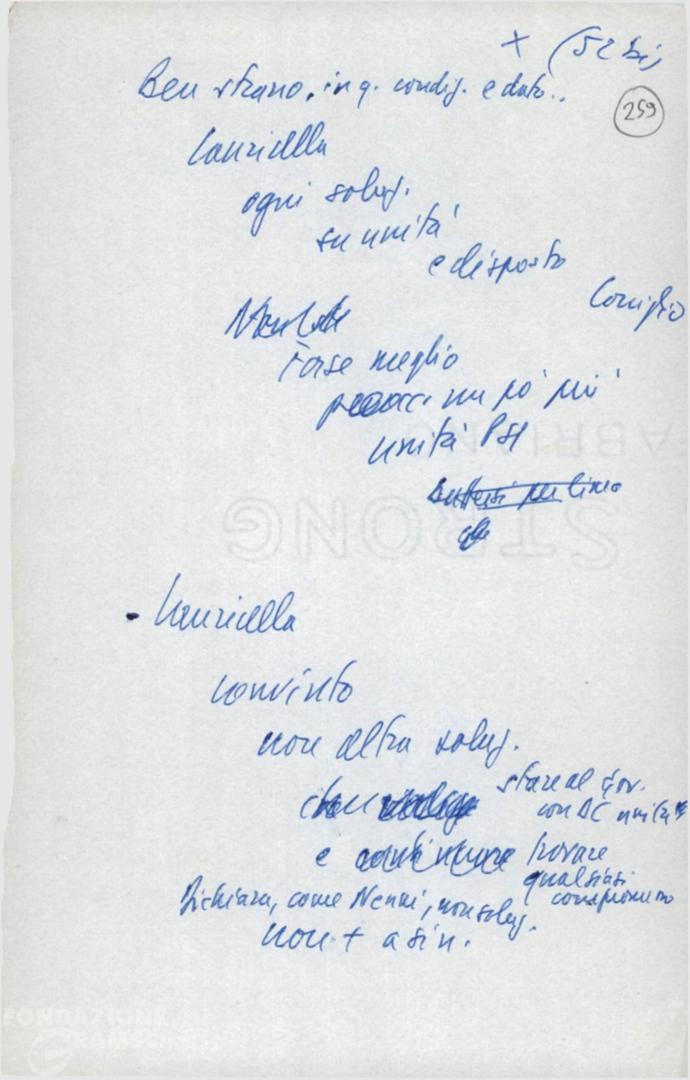 + (52 bis)
259
Ben strano, in q. condiz. e dato..
Lauricella
ogni soluz.
su unità
e disposto
Consiglio
forse meglio
un pò più
unità PSI
- Lauricella
convinto
non altra soluz.
che
stare al gov.
con DC unità
e continuare trovare
qualsiasi
compromesso
Dichiara, come Nenni, non soluz.
non + a sin.
FABRIANO
STRONG
FONDAZIONE
GRAMSCI